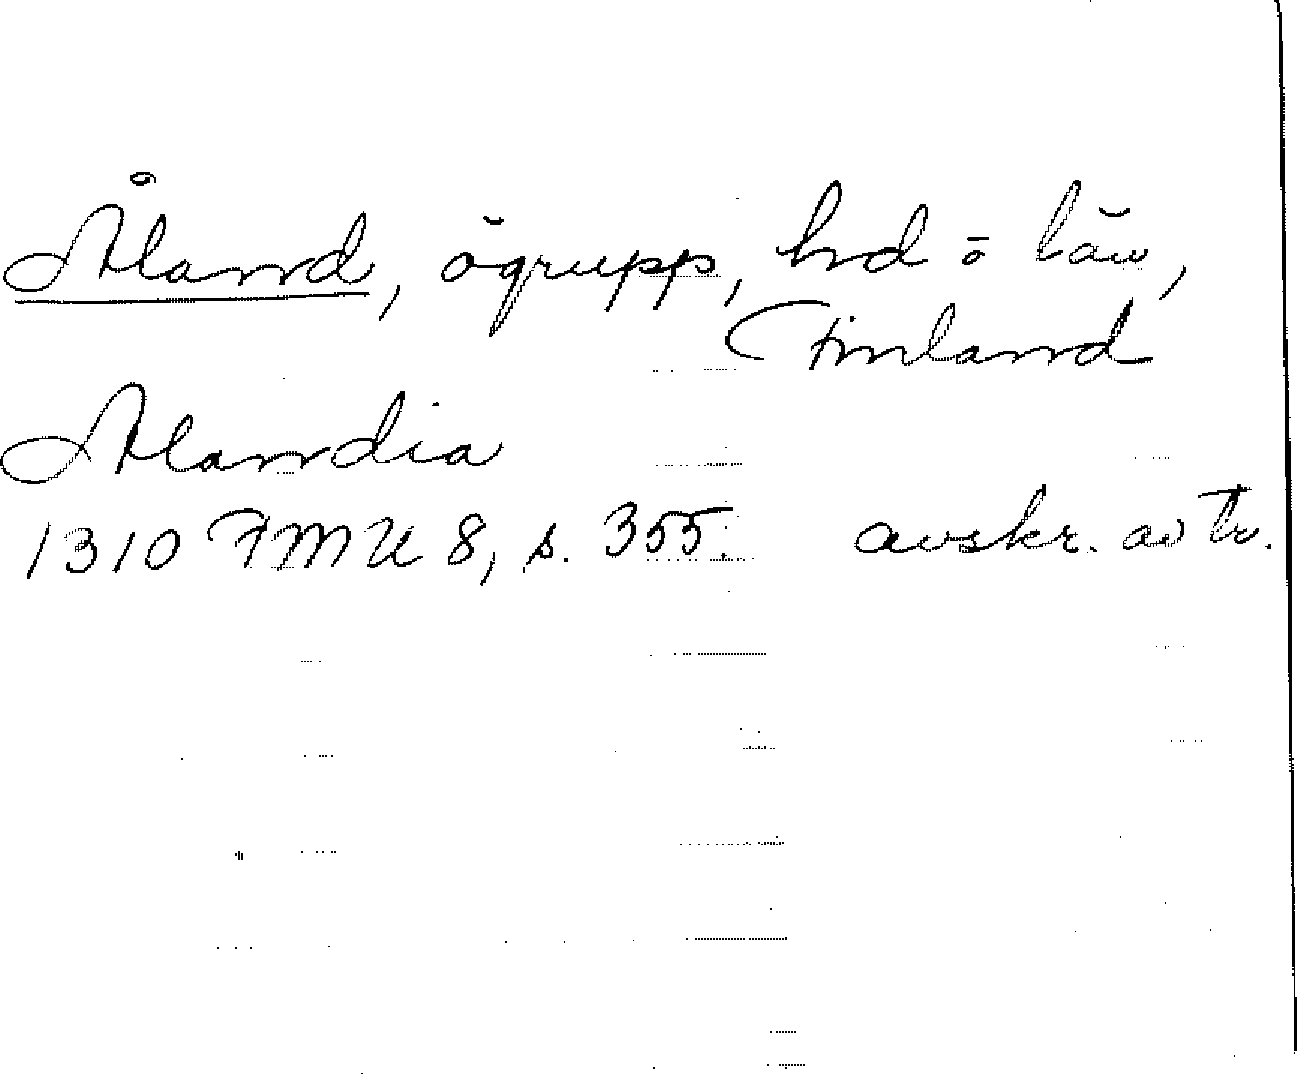 Åland, ögrupp, hd o län,
Finland
Alandia
1310 FMU 8, s. 355. avskr. av tr.